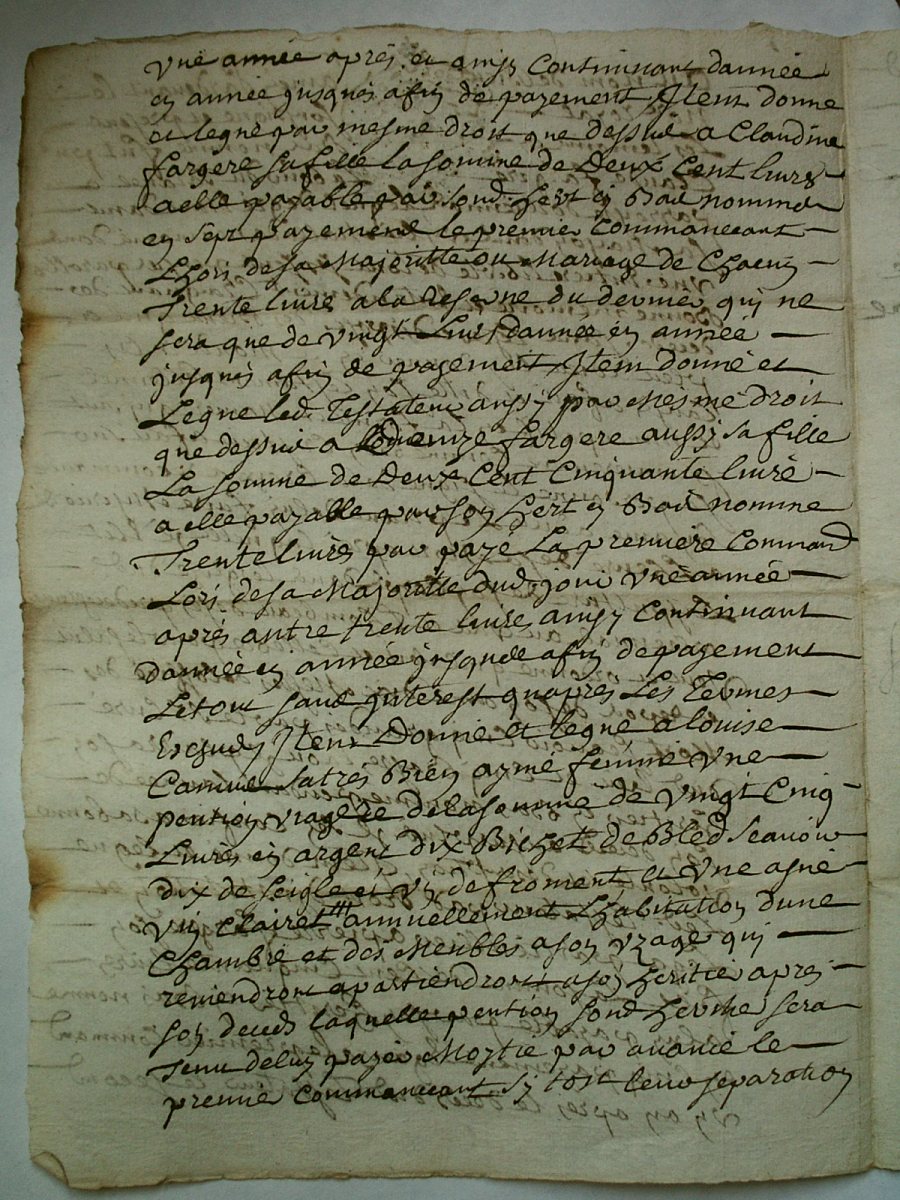 vne année aprés et ainsy Continuant dannée
en année jusques a fin de payement Jtem donne
et legue par mesme droit que dessus a Claudine
fargere sa fille la somme de Deux Cent liures
a elle payable par sond. hert en bas nomme
en sept payement le premier Commancant
Lhors de sa Majoritté ou Mariage de Chacun
trente liure a la Reserue du dernier qui ne
sera que de vingt Liures dannée en année
jusques a fin de payement Jtem Donné et
Legue led. Testateur aussy par Mesme droit
que dessus a fargere aussy sa fille
La somme de Deux Cent Cinquante liure
a elle payable par son hert en bas nomme
Trente liures par payé La premiere Command
Lors de sa Majoritté dud. jour vne année
aprés autre trente liure ainsy Continuant
dannée en année jusques a fin de payement
Le tout sans jnterest quaprés Les Termes
Escheus Jtem Donne et legue a louise
Camuse sa trés Bien aymé femme vne
pention viagere de la somme de vingt Cinq
Liures en argent dix Bichet de Bled Scauoir
dix de seigle et vn de froment et vne asné
vin Clairet annuellement Lhabitation dune
Chambre et des Meubles a son vzage qui
reuiendront apartiendront a son heritié aprés
son deceds laquelle pention sond. herithe sera
tenu de luy payér Moytié par auance le
premié Commancant sy tost leur separation